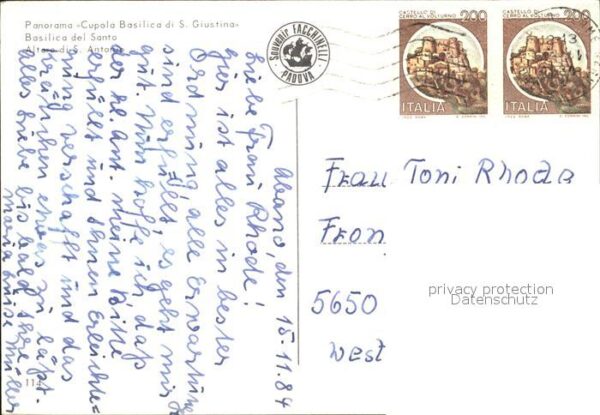 Panorama «Cupola Basilica di S. Giustina»
Basilica del Santo
Altare di S. Antonio
Souvenir FACCHINELLI
PADOVA
CASTELLO DI CERRO AL VOLTURNO
200
ITALIA
CASTELLO DI CERRO AL VOLTURNO
200
ITALIA
Abano, den 15.11.84
Liebe Frau Rhode!
Hier ist alles in bester
Ordnung, alle Erwartung
sind erfüllt, es geht mir
gut. Nun hoffe ich daß
der hl. Ant. meine Bitte
erfüllt und Ihnen Erleichte=
rung verschafft und das
Kräftchen etwas zu läßt.
alles Liebe bis bald Ihre
Maria Luise Müller
Frau Toni Rhode
Fron
5650
West
privacy protection
Datenschutz
114